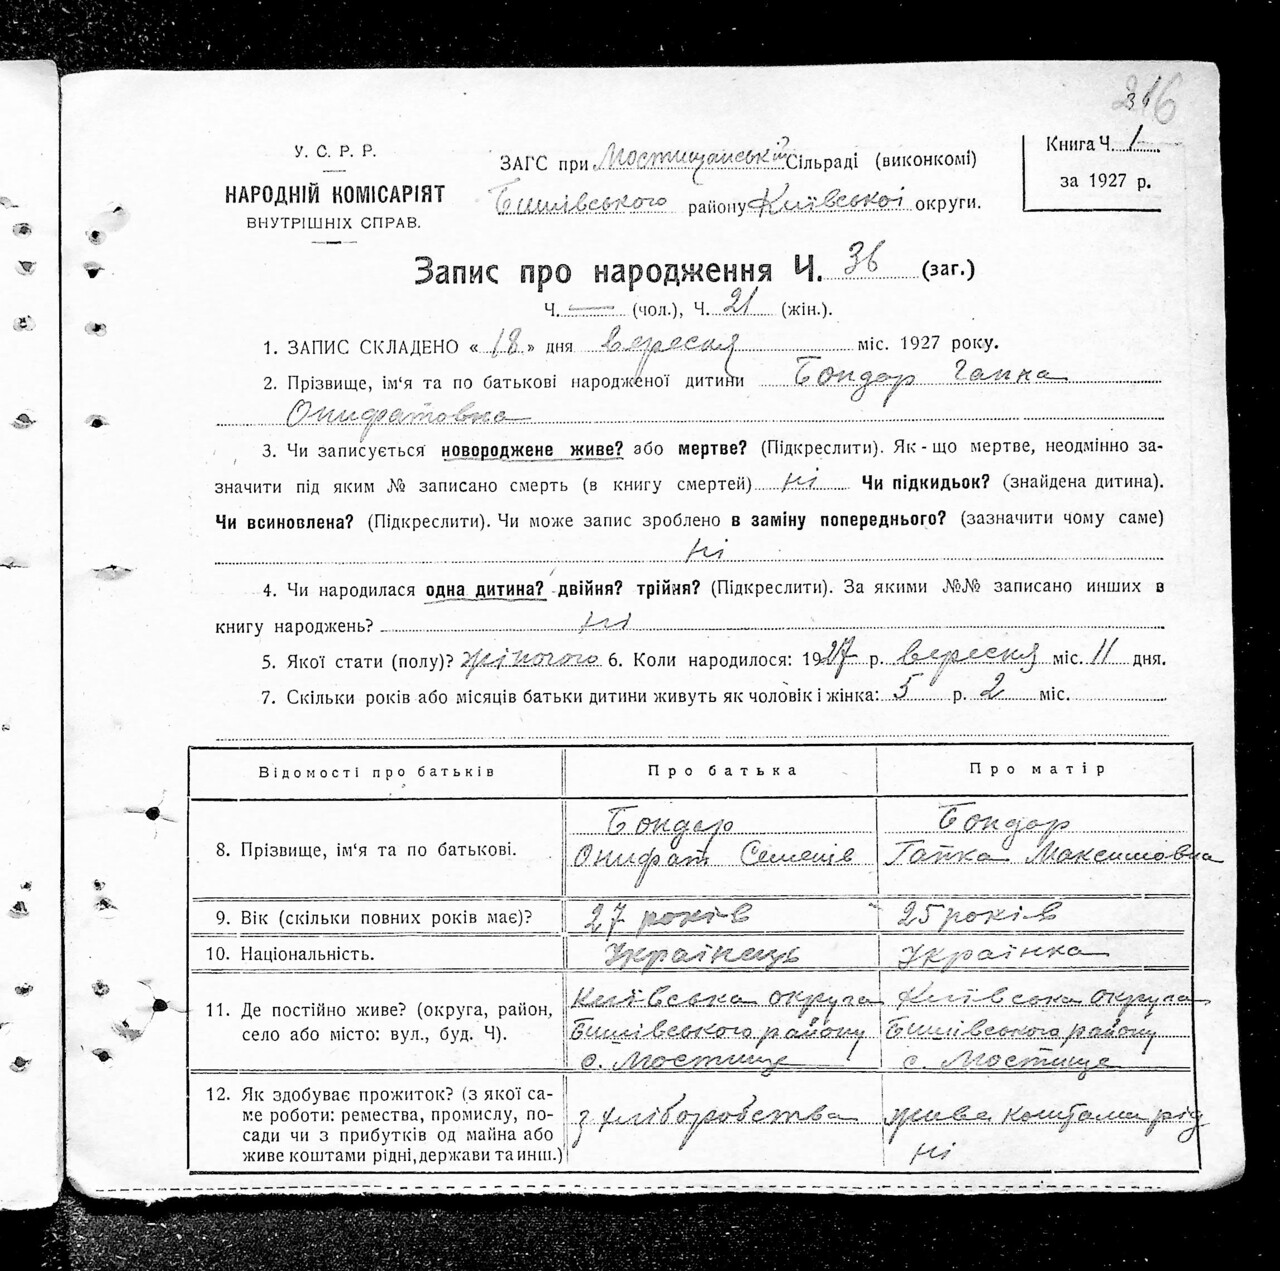 216
У. С. Р. Р.
НАРОДНІЙ КОМІСАРІЯТ
ВНУТРІШНІХ СПРАВ.
ЗАГС при Мостищанській Сільраді (виконкомі)
Бишівського району Київської округи.
Книга Ч. 1
за 1927 р.
Запис про народження Ч. 36 (заг.)
Ч. — (чол.), Ч. 21 (жін.).
1. ЗАПИС СКЛАДЕНО « 18 » дня Вересня міс. 1927 року.
2. Прізвище, ім‘я та по батькові народженої дитини Бондар Гапка
Онифатовна
3. Чи записується новороджене живе? або мертве? (Підкреслити). Як - що мертве, неодмінно за-
значити під яким № записано смерть (в книгу смертей) ні Чи підкидьок? (знайдена дитина).
Чи всиновлена? (Підкреслити). Чи може запис зроблено в заміну попереднього? (зазначити чому саме)
ні
4. Чи народилася одна дитина? двійня? трійня? (Підкреслити). За якими №№ записано инших в
книгу народжень? ні
5. Якої стати (полу)? жіночого 6. Коли народилося: 1927 р. вересня міс. 11 дня.
7. Скільки років або місяців батьки дитини живуть як чоловік і жінка: 5 р. 2 міс.
Відомості про батьків Про батька Про матір
8. Прізвище, ім‘я та по батькові. Бондар Онифат Семенів Бондар Гапка Максимовна
9. Вік (скільки повних років має)? 27 років 25 років
10. Національність. Українець Українка
11. Де постійно живе? (округа, район, Київська округа Київська округа
село або місто: вул., буд. Ч). Бишівського району Бишівського району
с. Мостище с. Мостище
12. Як здобуває прожиток? (з якої са-
ме роботи: ремества, промислу, по- з хліборобства живе коштами рід
сади чи з прибутків од майна або
живе коштами рідні, держави та инш.) ні